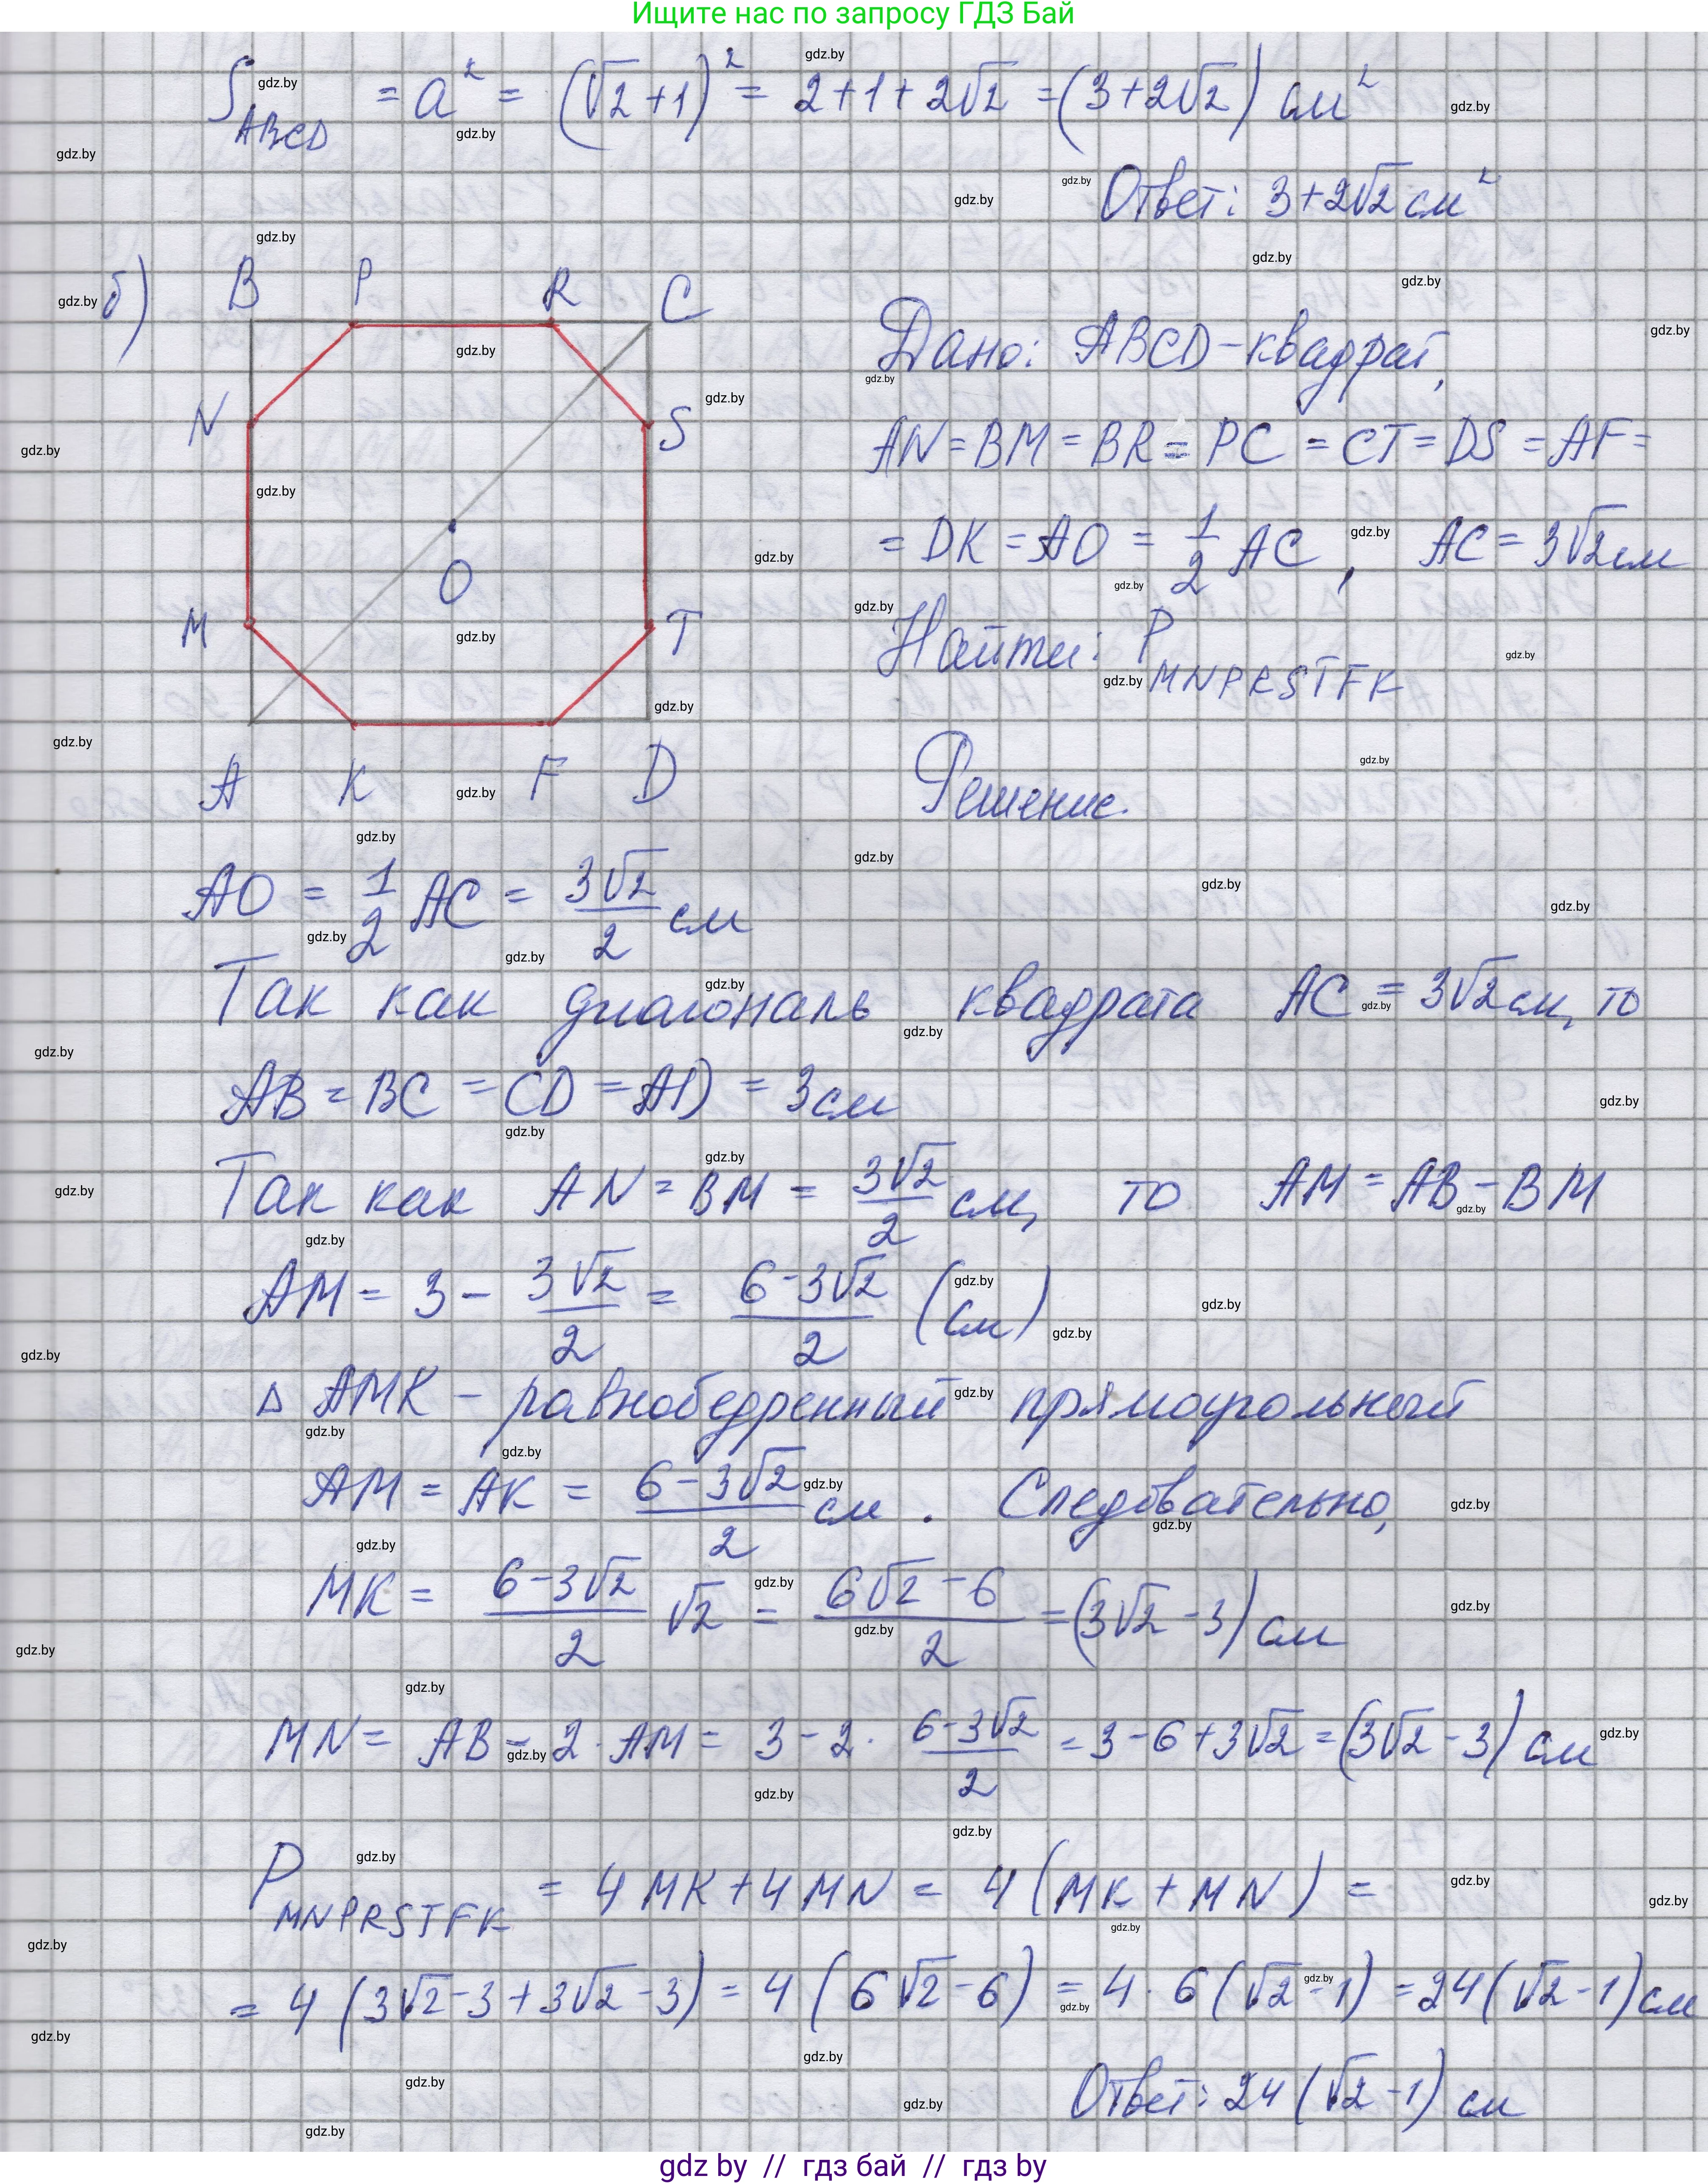 Ищите нас по запросу ГДЗ Бай
S_ABCD = a² = (√2+1)² = 2+1+2√2 = (3+2√2) см²
Ответ: 3+2√2 см²
б)
B P R C
N S
O
M T
A K F D
Дано: ABCD-квадрат,
AN = BM = BR = PC = CT = DS = AF =
= DK = AO = 1/2 AC, AC = 3√2 см
Найти: P_MNPRSTFK
Решение.
AO = 1/2 AC = 3√2/2 см
Так как диагональ квадрата AC = 3√2 см, то
AB = BC = CD = AD = 3 см
Так как AN = BM = 3√2/2 см, то AM = AB - BM
AM = 3 - 3√2/2 = (6-3√2)/2 (см)
Δ AMK - равнобедренный прямоугольный
AM = AK = (6-3√2)/2 см. Следовательно,
MK = (6-3√2)/2 √2 = (6√2-6)/2 = (3√2-3) см
MN = AB - 2·AM = 3 - 2· (6-3√2)/2 = 3-6+3√2 = (3√2-3) см
P_MNPRSTFK = 4MK+4MN = 4(MK+MN) =
= 4(3√2-3+3√2-3) = 4(6√2-6) = 4·6(√2-1) = 24(√2-1) см
Ответ: 24(√2-1) см
gdz by // гдз бай // гдз by